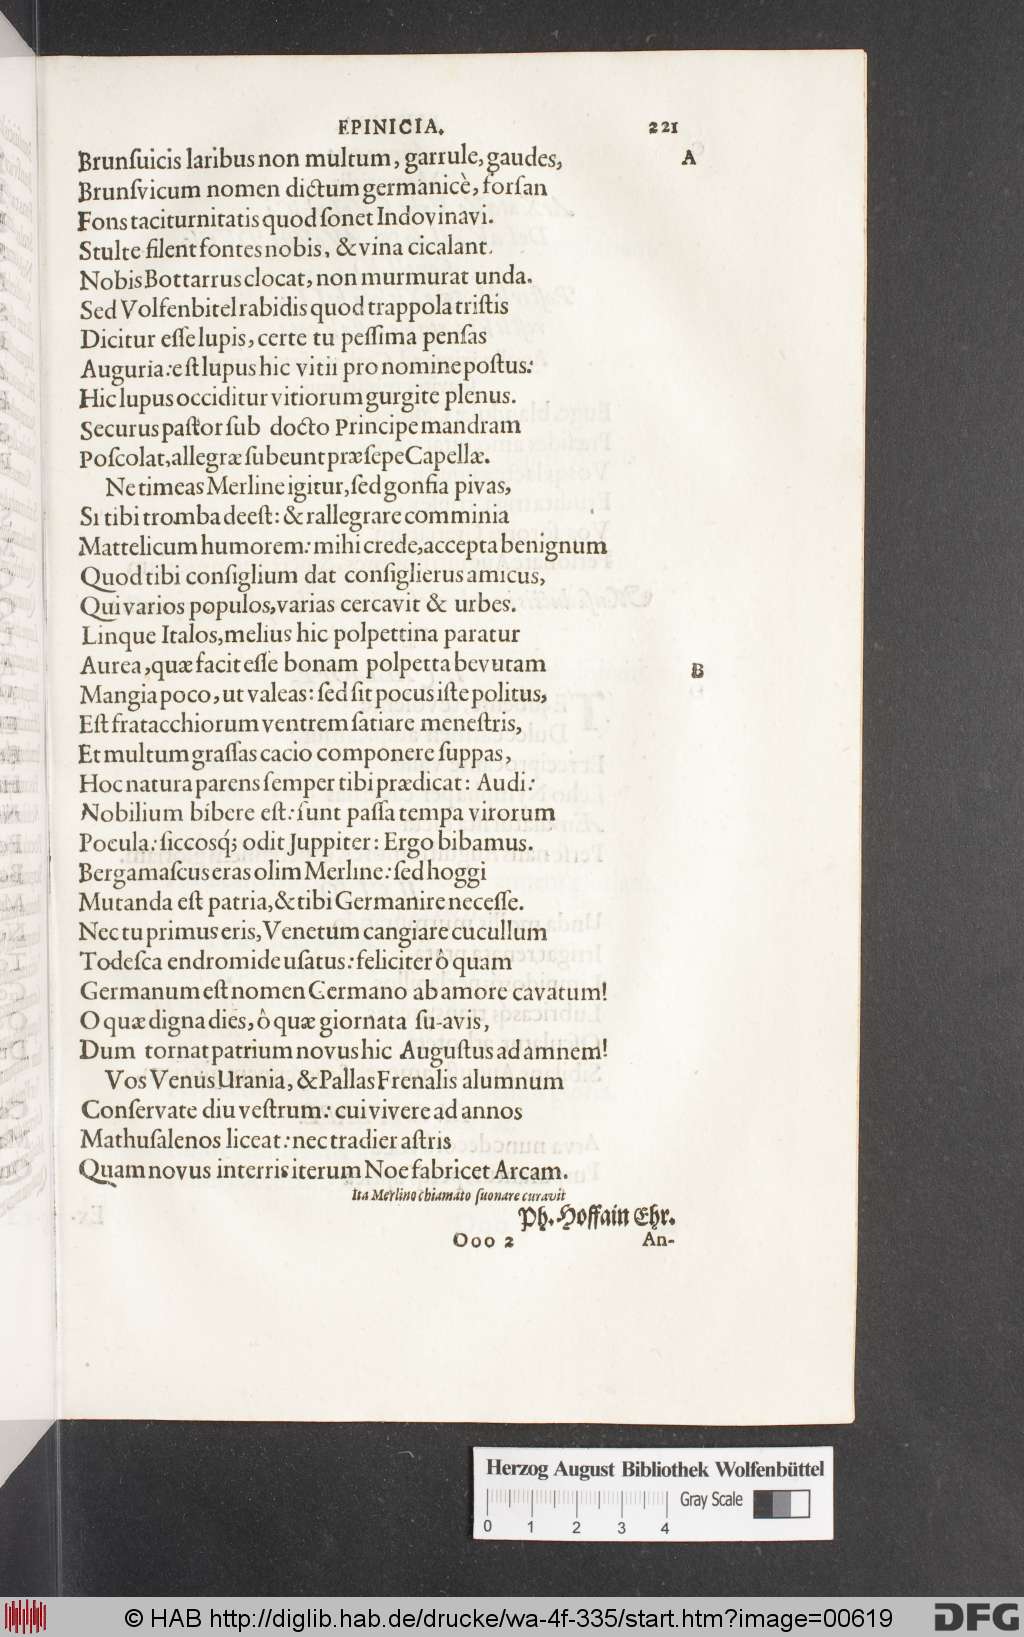 EPINICIA. 221
Brunſuicis laribus non multum, garrule, gaudes, A
Brunſvicum nomen dictum germanicè, forſan
Fons taciturnitatis quod ſonet Indovinavi.
Stulte ſilent fontes nobis, & vina cicalant.
Nobis Bottarrus clocat, non murmurat unda.
Sed Volfenbitel rabidis quod trappola triſtis
Dicitur eſſe lupis, certe tu peſſima penſas
Auguria: eſt lupus hic vitii pro nomine poſtus:
Hic lupus occiditur vitiorum gurgite plenus.
Securus paſtor ſub docto Principe mandram
Poſcolat, allegræ ſubeunt præſepe Capellæ.
Ne timeas Merline igitur, ſed gonfia pivas,
Si tibi tromba deeſt: & rallegrare comminia
Mattelicum humorem: mihi crede, accepta benignum
Quod tibi conſiglium dat conſiglierus amicus,
Qui varios populos, varias cercavit & urbes.
Linque Italos, melius hic polpettina paratur
Aurea, quæ facit eſſe bonam polpetta bevutam B
Mangia poco, ut valeas: ſed ſit pocus iſte politus,
Eſt fratacchiorum ventrem ſatiare meneſtris,
Et multum graſſas cacio componere ſuppas,
Hoc natura parens ſemper tibi prædicat: Audi:
Nobilium bibere eſt: ſunt paſſa tempa virorum
Pocula: ſiccosq́; odit Juppiter: Ergo bibamus.
Bergamaſcus eras olim Merline: ſed hoggi
Mutanda eſt patria, & tibi Germanire neceſſe.
Nec tu primus eris, Venetum cangiare cucullum
Todeſca endromide uſatus: feliciter ô quam
Germanum eſt nomen Germano ab amore cavatum!
O quæ digna dies, ô quæ giornata ſu-avis,
Dum tornat patrium novus hic Auguſtus ad amnem!
Vos Venus Urania, & Pallas Frenalis alumnum
Conſervate diu veſtrum: cui vivere ad annos
Mathuſalenos liceat: nec tradier aſtris
Quam novus in terris iterum Noe fabricet Arcam.
Ita Merlino chiamato ſuonare curavit
Ph. Hoffain Ehr.
Ooo 2 An-
Herzog August Bibliothek Wolfenbüttel
Gray Scale
0 1 2 3 4
© HAB http://diglib.hab.de/drucke/wa-4f-335/start.htm?image=00619 DFG